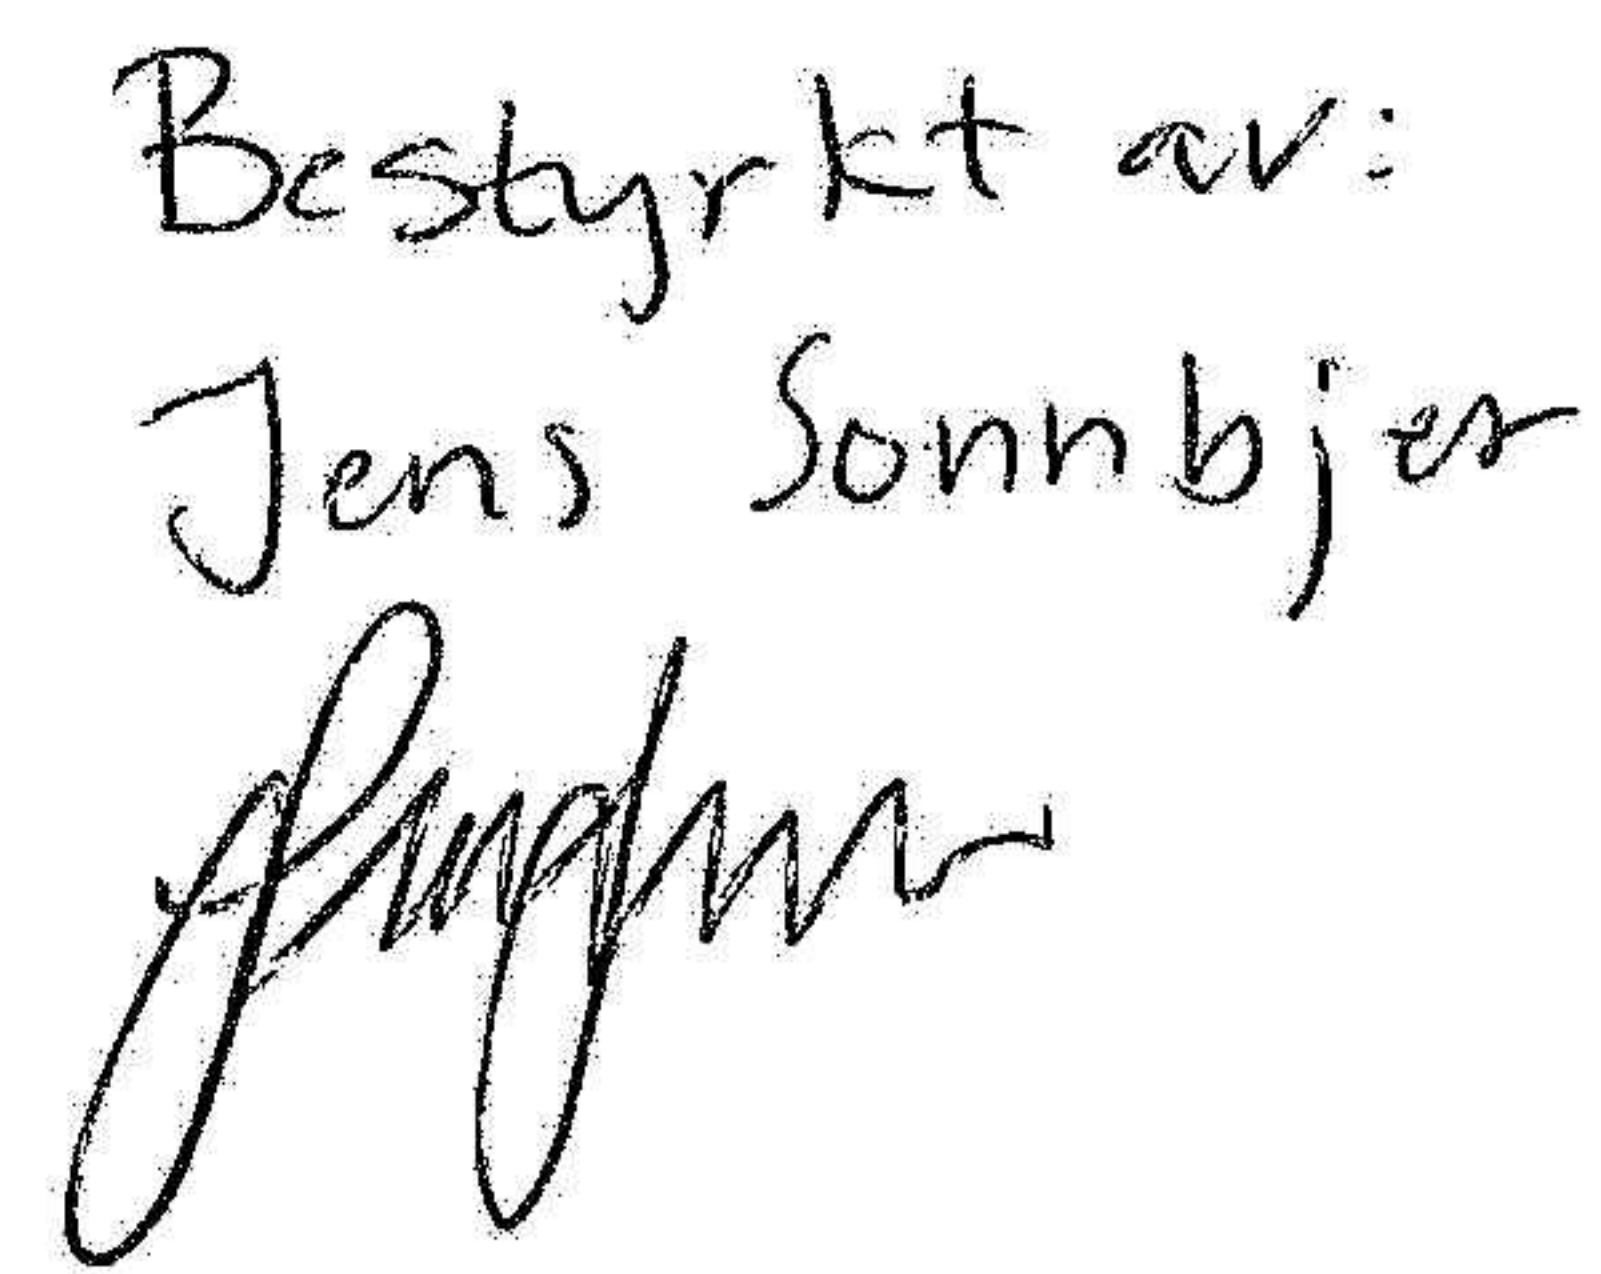 Bestyrkt av:
Jens Sonnbjer